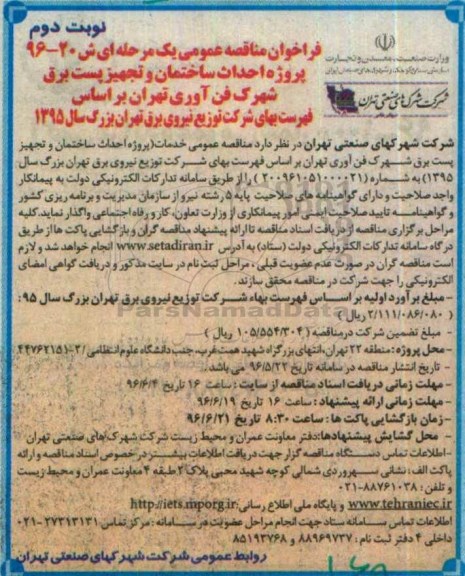 نوبت دوم
فراخوان مناقصه عمومی یک مرحله ای ش ۲۰-۹۶
پروژه احداث ساختمان و تجهیز پست برق
شهرک فن آوری تهران بر اساس
فهرست بهای شرکت توزیع نیروی برق تهران بزرگ سال ۱۳۹۵
وزارت صنعت، معدن و تجارت
شرکت شهرکهای صنعتی تهران
شرکت شهرکهای صنعتی تهران در نظر دارد مناقصه عمومی خدمات (پروژه احداث ساختمان و تجهیز
پست برق شهرک فن آوری تهران بر اساس فهرست بهای شرکت توزیع نیروی برق تهران بزرگ سال
۱۳۹۵) به شماره (۲۰۰۹۶۱۰۵۱۰۰۰۰۲۱) را از طریق سامانه تدارکات الکترونیکی دولت به پیمانکار
واجد صلاحیت و دارای گواهینامه های صلاحیت پایه ۵ رشته نیرو از سازمان مدیریت و برنامه ریزی کشور
و گواهینامه تایید صلاحیت ایمنی امور پیمانکاری از وزارت تعاون، کار و رفاه اجتماعی واگذار نماید. کلیه
مراحل برگزاری مناقصه از دریافت اسناد مناقصه تا ارائه پیشنهاد مناقصه گران و بازگشایی پاکت ها از طریق
درگاه سامانه تدارکات الکترونیکی دولت (ستاد) به آدرس www.setadiran.ir انجام خواهد شد و لازم
است مناقصه گران در صورت عدم عضویت قبلی، مراحل ثبت نام در سایت مذکور و دریافت گواهی امضای
الکترونیکی را جهت شرکت در مناقصه محقق سازند.
- مبلغ برآورد اولیه بر اساس فهرست بهاء شرکت توزیع نیروی برق تهران بزرگ سال ۹۵:
(۲/۱۱۱/۰۸۶/۰۸۰ ریال)
- مبلغ تضمین شرکت در مناقصه (۱۰۵/۵۵۴/۳۰۴ ریال)
- محل پروژه: منطقه ۲۲ تهران، انتهای بزرگراه شهید همت غرب، جنب دانشگاه علوم انتظامی / ۳-۴۴۷۶۲۱۵۱
تاریخ انتشار مناقصه در سامانه تاریخ ۹۶/۵/۲۲ می باشد.
- مهلت زمانی دریافت اسناد مناقصه از سایت: ساعت ۱۶ تاریخ ۹۶/۶/۴
- مهلت زمانی ارائه پیشنهاد: ساعت ۱۶ تاریخ ۹۶/۶/۱۹
- زمان بازگشایی پاکت ها: ساعت ۸:۳۰ تاریخ ۹۶/۶/۲۱
- محل گشایش پیشنهادها: دفتر معاونت عمران و محیط زیست شرکت شهرکهای صنعتی تهران
- اطلاعات تماس دستگاه مناقصه گزار جهت دریافت اطلاعات بیشتر در خصوص اسناد مناقصه و ارائه
پاکت الف: نشانی سهروردی شمالی کوچه شهید محبی پلاک ۲ طبقه ۴ معاونت عمران و محیط زیست
و تلفن: ۸۸۷۶۱۰۳۸-۰۲۱
www.tehraniec.ir و پایگاه ملی اطلاع رسانی: http://iets.mporg.ir
اطلاعات تماس سامانه ستاد جهت انجام مراحل عضویت در سامانه: مرکز تماس ۲۷۳۱۳۱۳۱-۰۲۱
دفتر ثبت نام: ۸۸۹۶۹۷۳۷ و ۸۵۱۹۳۷۶۸
روابط عمومی شرکت شهرکهای صنعتی تهران
ParsNamadData